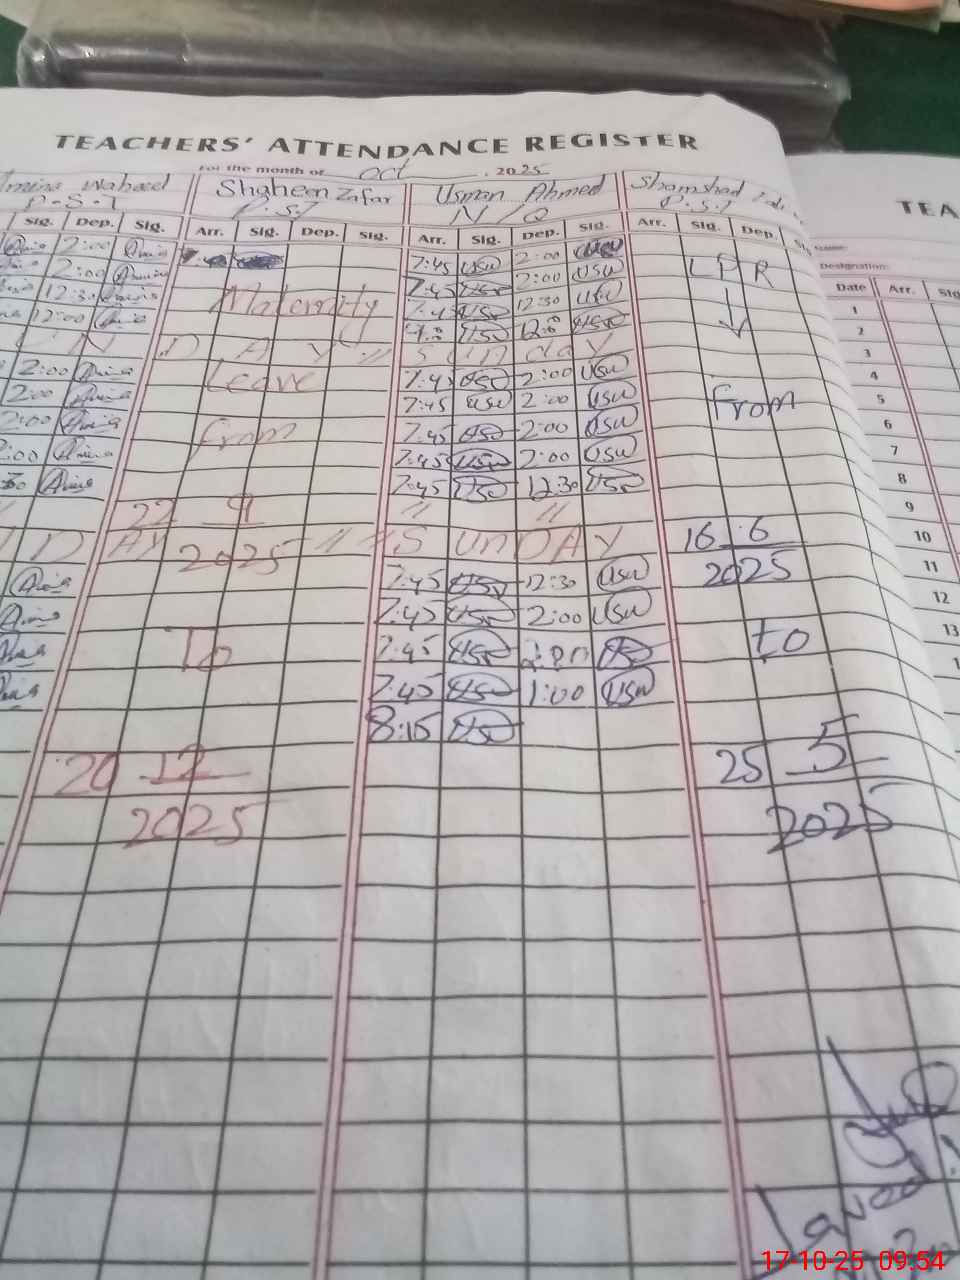 TEACHERS' ATTENDANCE REGISTER
For the month of Oct , 2025
Amina Waheed Shaheen Zafar Usman Ahmed Shamshad
P.S.T P.S.T N/Q P.S.T
Sig. Dep. Sig. Arr. Sig. Dep. Sig. Arr. Sig. Dep. Sig. Arr. Sig. Dep. Sig.
2:00 Amina 7:45 USW 2:00 USW LPR
2:00 Amina 7:45 USW 2:00 USW
12:30 Amina Maternity 7:45 USW 12:30 USW
12:00 Amina USW USW
N D A Y // Sunday
2:00 Amina Leave 7:45 USW 2:00 USW
2:00 Amina 7:45 USW 2:00 USW From
2:00 Amina from 7:45 USW 2:00 USW
:00 Amina 7:45 USW 2:00 USW
Amina 7:45 USW 12:30 USW
22 9 // //
N D AY 2025 // SUNDAY 16 6
Amina 7:45 USW 12:30 USW 2025
Amina 7:45 USW 2:00 USW
Amina To 7:45 USW USW to
Amina 7:45 USW 1:00 USW
8:15 USW
20 12 25 5
2025 2025
Javed
TEA
Name:
Designation:
Date Arr. Sig
1
2
3
4
5
6
7
8
9
10
11
12
13
17-10-25 09:54